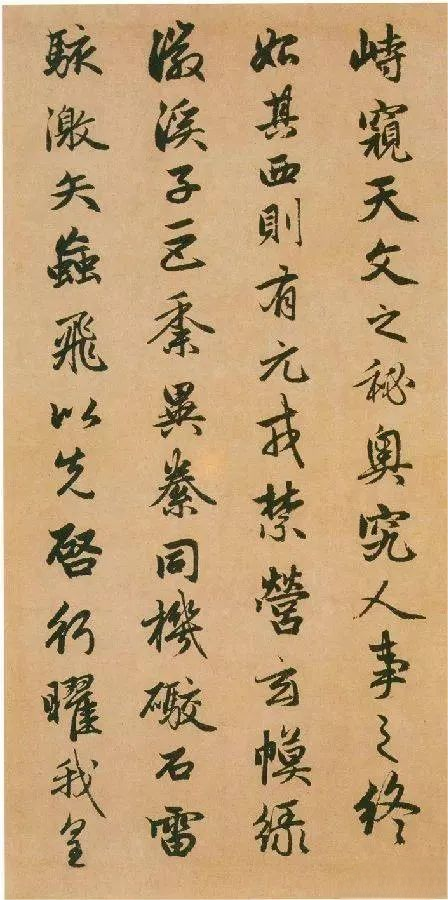 峙窺天文之秘奧究人事之終
始其西則有元戎禁營玄幙緑
徽溪子巨黍異絭同機礮石雷
駭激矢蝱飛以先啓行曜我皇